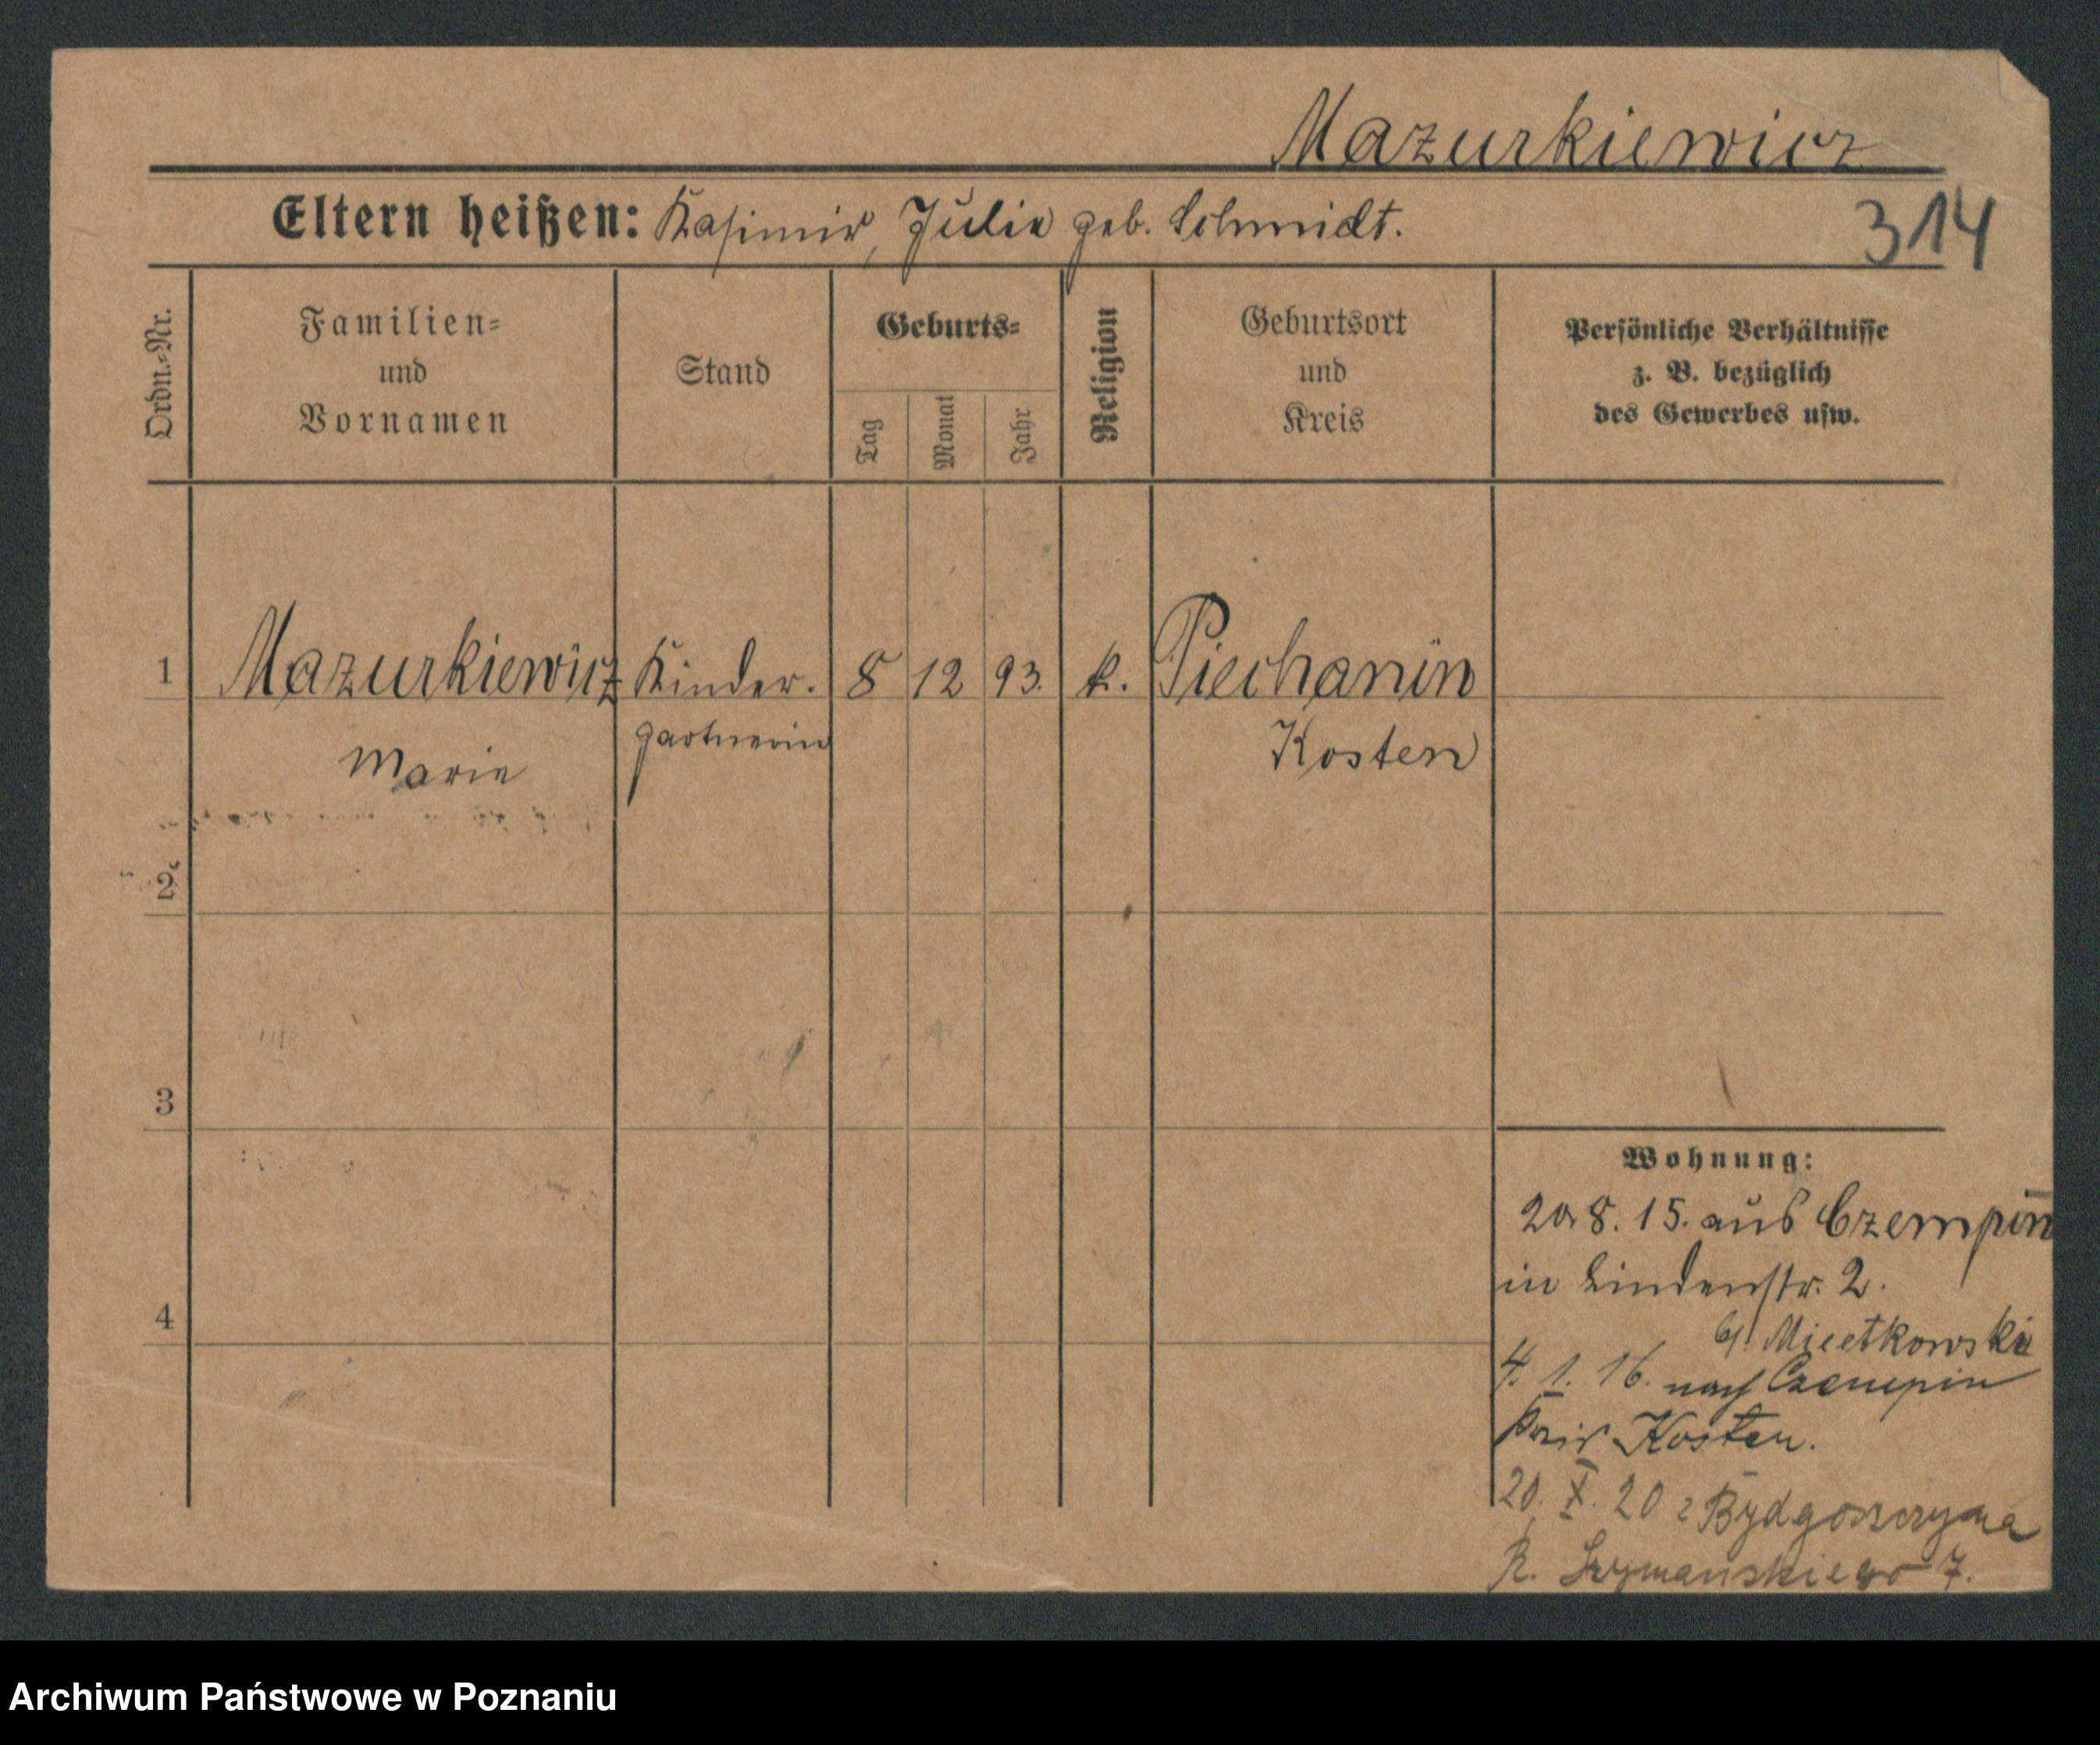 Mazurkiewicz
Eltern heißen: Kasimir, Julie geb. Schmidt.
314
Ordn.-Nr.
Familien-
und
Vornamen
Stand
Geburts-
Tag
Monat
Jahr
Religion
Geburtsort
und
Kreis
Persönliche Verhältnisse
z. B. bezüglich
des Gewerbes usw.
1 Mazurkiewicz Kinder. 8 12 93. k. Piechanin
Marie gärtnerin Kosten
2
3
4
Wohnung:
20.8.15. aus Czempin
in Lindenstr. 2.
b/ Mietkowski
4. 1. 16. nach Czempin
Kreis Kosten.
20. X. 20 z Bydgoszczyna
R. Szymańskiego 7.
Archiwum Państwowe w Poznaniu